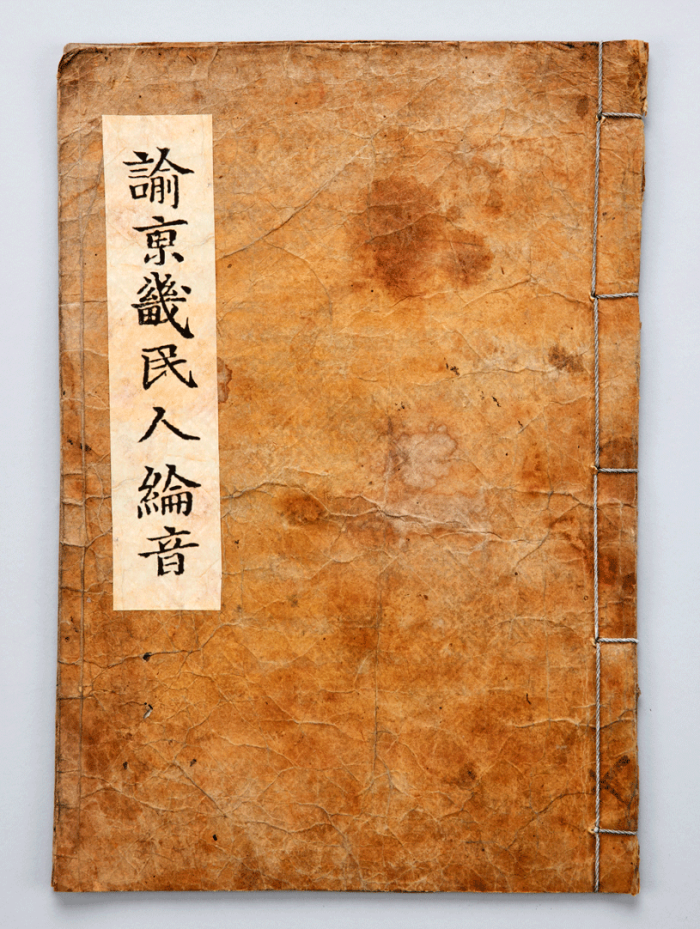 諭京畿民人綸音